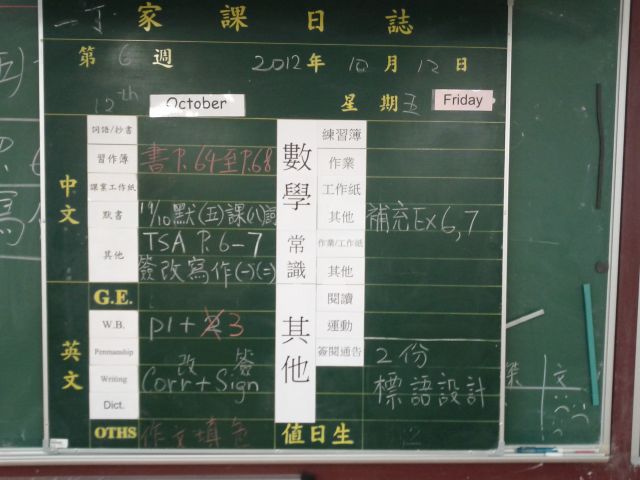 一丁 家課日誌
第 6 週 2012年 10月 12日
12th October 星期五 Friday
中文
詞語/抄書
習作簿 書P.64至P.68
課業工作紙
默書 19/10默(五)課(八)詞
其他 TSA P.6-7
簽改寫作(一)(二)
英文
G.E.
W.B. p1+3
Penmanship 改 簽
Writing Corr + Sign
Dict.
OTHS 作文填色
數學
練習簿
作業
工作紙
其他 補充Ex6,7
常識
作業/工作紙
其他
其他
閱讀
運動
簽閱通告 2份
標語設計
值日生 12
文